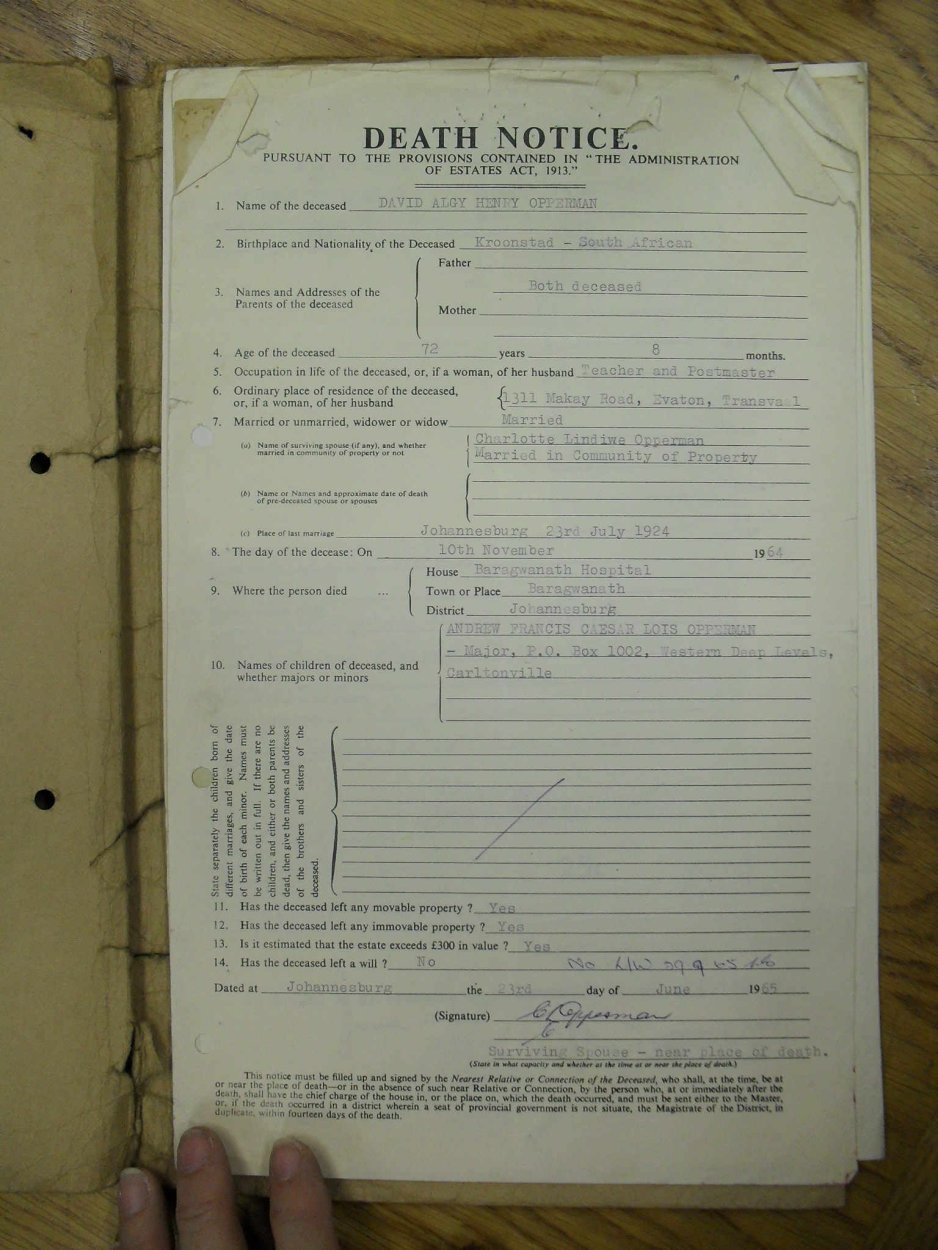 DEATH NOTICE.
PURSUANT TO THE PROVISIONS CONTAINED IN "THE ADMINISTRATION
OF ESTATES ACT, 1913."
1. Name of the deceased DAVID ALGY HENRY OPPERMAN
2. Birthplace and Nationality of the Deceased Kroonstad - South African
3. Names and Addresses of the
Parents of the deceased
Father
Both deceased
Mother
4. Age of the deceased 72 years 8 months.
5. Occupation in life of the deceased, or, if a woman, of her husband Teacher and Postmaster
6. Ordinary place of residence of the deceased,
or, if a woman, of her husband
1311 Makay Road, Evaton, Transvaal
7. Married or unmarried, widower or widow Married
(a) Name of surviving spouse (if any), and whether
married in community of property or not
Charlotte Lindiwe Opperman
Married in Community of Property
(b) Name or Names and approximate date of death
of pre-deceased spouse or spouses
(c) Place of last marriage Johannesburg 23rd July 1924
8. The day of the decease: On 10th November 1964
9. Where the person died ...
House Baragwanath Hospital
Town or Place Baragwanath
District Johannesburg
10. Names of children of deceased, and
whether majors or minors
ANDREW FRANCIS CAESAR LOIS OPPERMAN
- Major, P.O. Box 1002, Western Deep Levels,
Carltonville
State separately the children born of
different marriages, and give the date
of birth of each minor. Names must
be written out in full. If there are no
children, and either or both parents be
dead, then give the names and addresses
of the brothers and sisters of the
deceased.
11. Has the deceased left any movable property ? Yes
12. Has the deceased left any immovable property ? Yes
13. Is it estimated that the estate exceeds £300 in value ? Yes
14. Has the deceased left a will ? No No
Dated at Johannesburg the 23rd day of June 1965
(Signature) C L Opperman
Surviving Spouse - near place of death.
(State in what capacity and whether at the time at or near the place of death.)
This notice must be filled up and signed by the Nearest Relative or Connection of the Deceased, who shall, at the time, be at
or near the place of death—or in the absence of such near Relative or Connection, by the person who, at or immediately after the
death, shall have the chief charge of the house in, or the place on, which the death occurred, and must be sent either to the Master,
or, if the death occurred in a district wherein a seat of provincial government is not situate, the Magistrate of the District, in
duplicate, within fourteen days of the death.